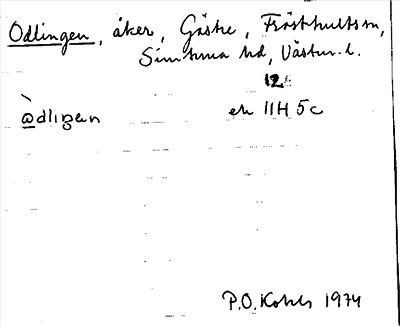 Odlingen, åker, Gäske, Frösthultssn,
Simtuna hd, Västm. l.
12
òdlıgən ek 11H 5c
P.O. Kohls 1974